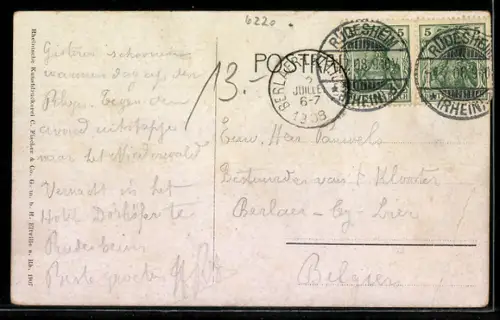 6220
13.-
POSTKARTE
5
5
RÜDESHEIM
(RHEIN)
RÜDESHEIM
* (RHEIN) *
BERLAER
2
JUILLET
6-7
1908
Gisteren
warmen dag op den
Rhijn. Tegen den
avond uitstapje
naar het Niederwald
Vernacht in het
Hôtel Dorhöfer te
Rudesheim
Beste groeten
Eerw. Heer Pauwels
Bestuurder van 't Klooster
Berlaer-by-Lier
Belgien
Rheinische Kunstdruckerei C. Fischer & Co. G. m. b. H., Eltville a. Rh. 1907